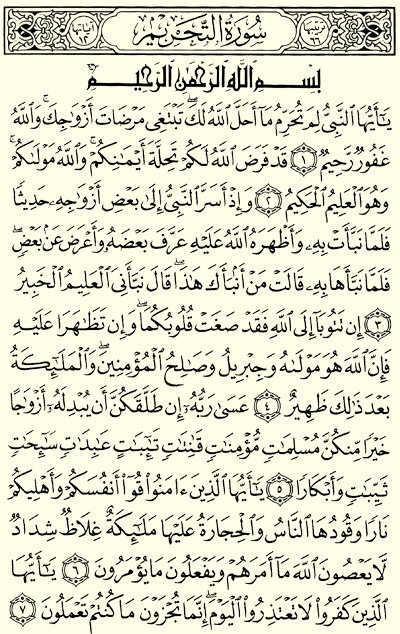 ترتيبها ٦٦ سُورَةُ التَّحْرِيمِ آياتها ١٢
بِسْمِ اللَّهِ الرَّحْمَٰنِ الرَّحِيمِ
يَٰٓأَيُّهَا ٱلنَّبِىُّ لِمَ تُحَرِّمُ مَآ أَحَلَّ ٱللَّهُ لَكَ ۖ تَبْتَغِى مَرْضَاتَ أَزْوَٰجِكَ ۚ وَٱللَّهُ
غَفُورٌ رَّحِيمٌ ۝١ قَدْ فَرَضَ ٱللَّهُ لَكُمْ تَحِلَّةَ أَيْمَٰنِكُمْ ۚ وَٱللَّهُ مَوْلَىٰكُمْ ۖ
وَهُوَ ٱلْعَلِيمُ ٱلْحَكِيمُ ۝٢ وَإِذْ أَسَرَّ ٱلنَّبِىُّ إِلَىٰ بَعْضِ أَزْوَٰجِهِۦ حَدِيثًا
فَلَمَّا نَبَّأَتْ بِهِۦ وَأَظْهَرَهُ ٱللَّهُ عَلَيْهِ عَرَّفَ بَعْضَهُۥ وَأَعْرَضَ عَنۢ بَعْضٍ ۖ
فَلَمَّا نَبَّأَهَا بِهِۦ قَالَتْ مَنْ أَنۢبَأَكَ هَٰذَا ۖ قَالَ نَبَّأَنِىَ ٱلْعَلِيمُ ٱلْخَبِيرُ
۝٣ إِن تَتُوبَآ إِلَى ٱللَّهِ فَقَدْ صَغَتْ قُلُوبُكُمَا ۖ وَإِن تَظَٰهَرَا عَلَيْهِ
فَإِنَّ ٱللَّهَ هُوَ مَوْلَىٰهُ وَجِبْرِيلُ وَصَٰلِحُ ٱلْمُؤْمِنِينَ ۖ وَٱلْمَلَٰٓئِكَةُ
بَعْدَ ذَٰلِكَ ظَهِيرٌ ۝٤ عَسَىٰ رَبُّهُۥٓ إِن طَلَّقَكُنَّ أَن يُبْدِلَهُۥٓ أَزْوَٰجًا
خَيْرًا مِّنكُنَّ مُسْلِمَٰتٍ مُّؤْمِنَٰتٍ قَٰنِتَٰتٍ تَٰٓئِبَٰتٍ عَٰبِدَٰتٍ سَٰٓئِحَٰتٍ
ثَيِّبَٰتٍ وَأَبْكَارًا ۝٥ يَٰٓأَيُّهَا ٱلَّذِينَ ءَامَنُوا۟ قُوٓا۟ أَنفُسَكُمْ وَأَهْلِيكُمْ
نَارًا وَقُودُهَا ٱلنَّاسُ وَٱلْحِجَارَةُ عَلَيْهَا مَلَٰٓئِكَةٌ غِلَاظٌ شِدَادٌ
لَّا يَعْصُونَ ٱللَّهَ مَآ أَمَرَهُمْ وَيَفْعَلُونَ مَا يُؤْمَرُونَ ۝٦ يَٰٓأَيُّهَا
ٱلَّذِينَ كَفَرُوا۟ لَا تَعْتَذِرُوا۟ ٱلْيَوْمَ ۖ إِنَّمَا تُجْزَوْنَ مَا كُنتُمْ تَعْمَلُونَ ۝٧